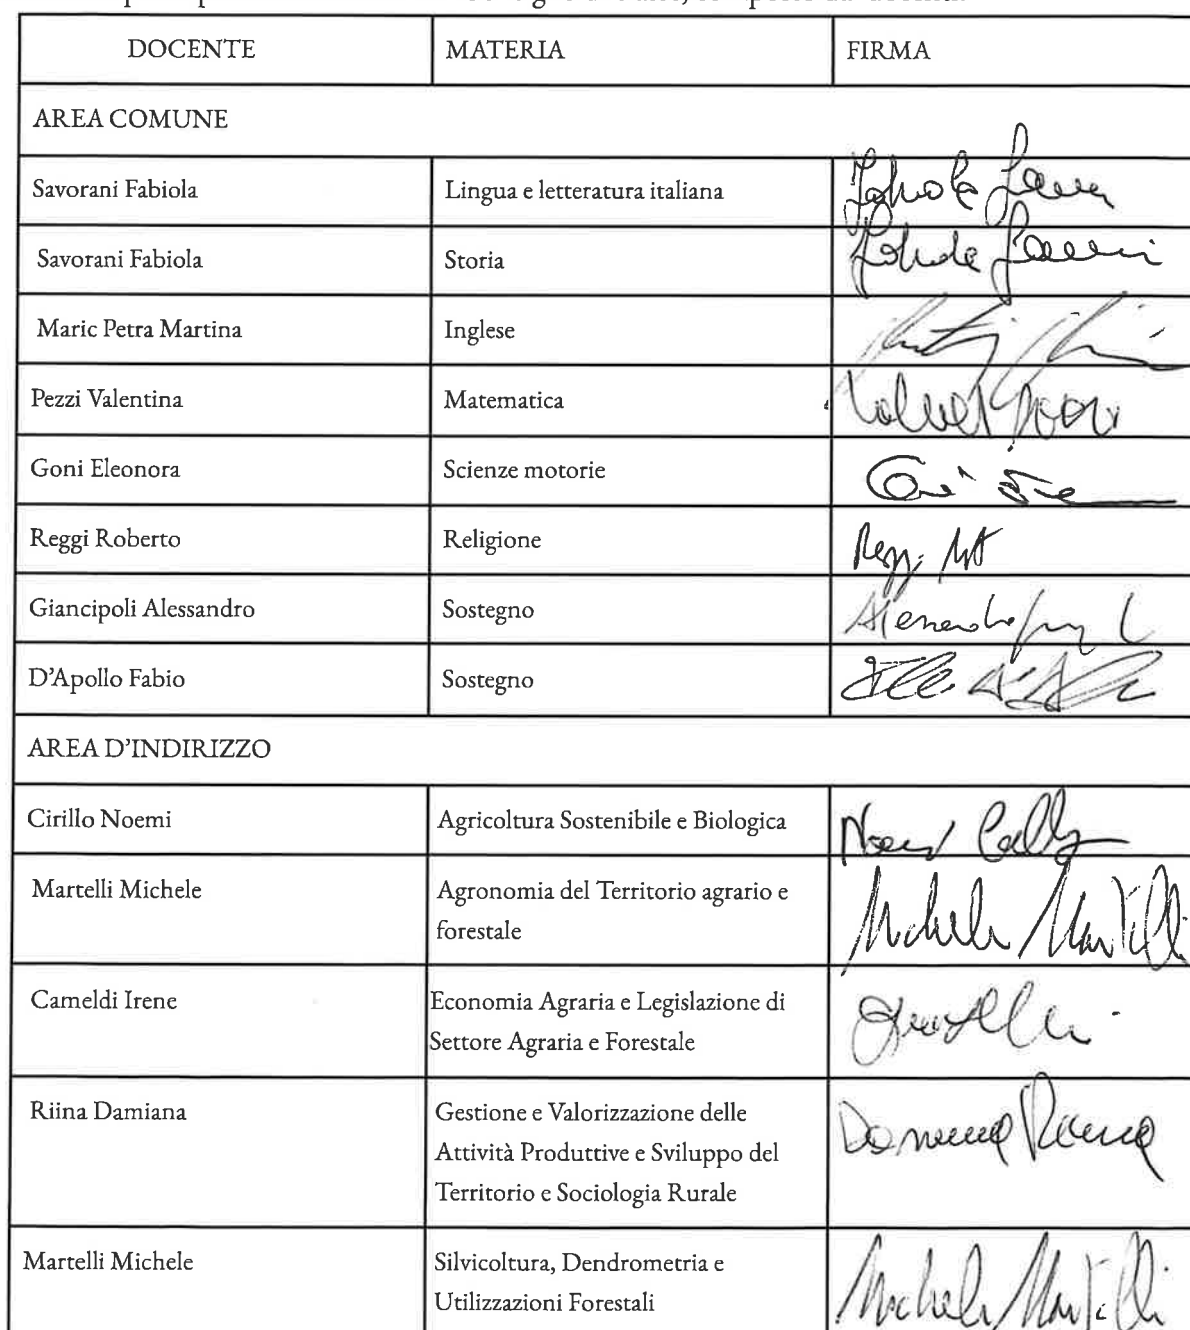 DOCENTE MATERIA FIRMA
AREA COMUNE
Savorani Fabiola Lingua e letteratura italiana
Savorani Fabiola Storia
Maric Petra Martina Inglese
Pezzi Valentina Matematica
Goni Eleonora Scienze motorie
Reggi Roberto Religione
Giancipoli Alessandro Sostegno
D'Apollo Fabio Sostegno
AREA D'INDIRIZZO
Cirillo Noemi Agricoltura Sostenibile e Biologica
Martelli Michele Agronomia del Territorio agrario e
forestale Michele Martelli
Cameldi Irene Economia Agraria e Legislazione di
Settore Agraria e Forestale
Riina Damiana Gestione e Valorizzazione delle
Attività Produttive e Sviluppo del Damiana Riina
Territorio e Sociologia Rurale
Martelli Michele Silvicoltura, Dendrometria e
Utilizzazioni Forestali Michele Martelli